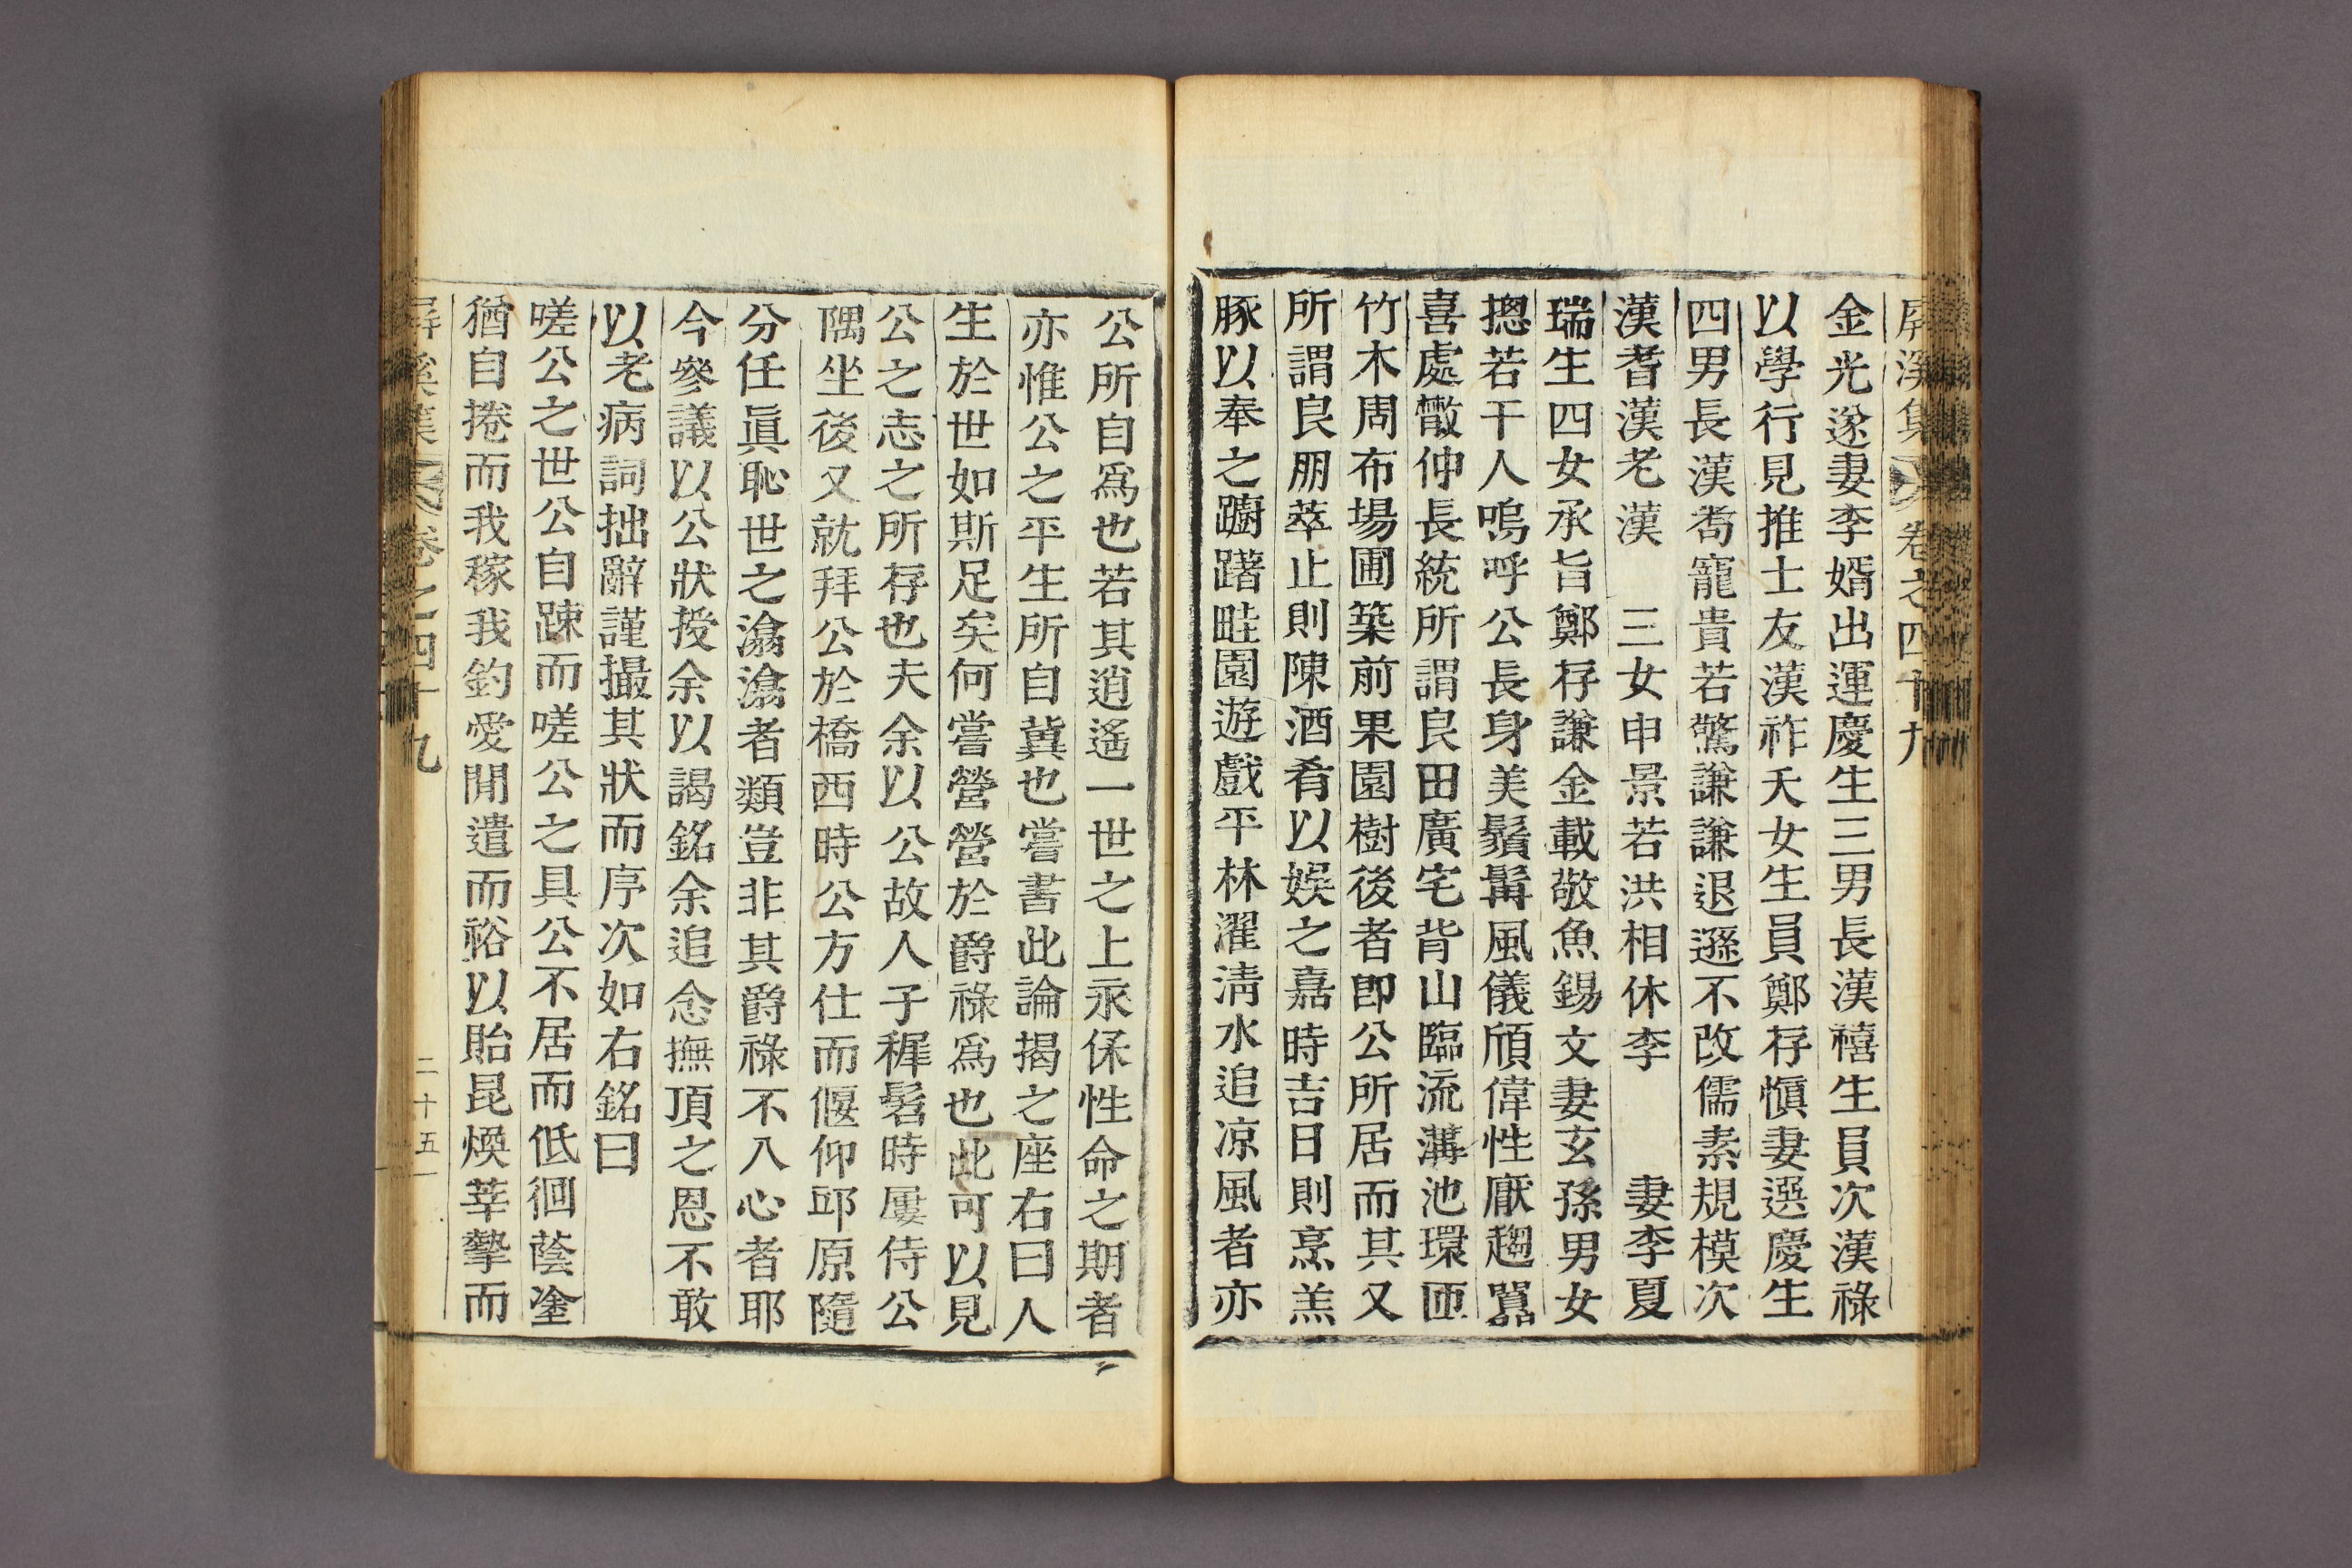 屛溪集 卷之四十九
金光遂妻李婿出運慶生三男長漢禧生員次漢祿
以學行見推士友漢祚夭女生員鄭存愼妻選慶生
四男長漢喬寵貴若驚謙謙退遜不改儒素規模次
漢耆漢老漢 三女申景若洪相休李 妻李夏
瑞生四女承旨鄭存謙金載敬魚錫文妻玄孫男女
摠若干人嗚呼公長身美鬚髯風儀頎偉性厭趨嚣
喜處散仲長統所謂良田廣宅背山臨流溝池環匝
竹木周布場圃築前果園樹後者卽公所居而其又
所謂良朋萃止則陳酒肴以娛之嘉時吉日則烹羔
豚以奉之躕躇畦園遊戲平林濯淸水追凉風者亦
公所自爲也若其逍遙一世之上永保性命之期者
亦惟公之平生所自冀也嘗書此論揭之座右曰人
生於世如斯足矣何嘗營營於爵祿爲也此可以見
公之志之所存也夫余以公故人子穉髫時屢侍公
隅坐後又就拜公於橋西時公方仕而偃仰邱原隨
分任眞恥世之滃滃者類豈非其爵祿不入心者耶
今參議以公狀授余以謁銘余追念撫頂之恩不敢
以老病詞拙辭謹撮其狀而序次如右銘曰
嗟公之世公自踈而嗟公之具公不居而低徊蔭塗
猶自捲而我稼我釣愛閒遣而裕以貽昆煥莘摯而
屛溪集 卷之四十九 二十五